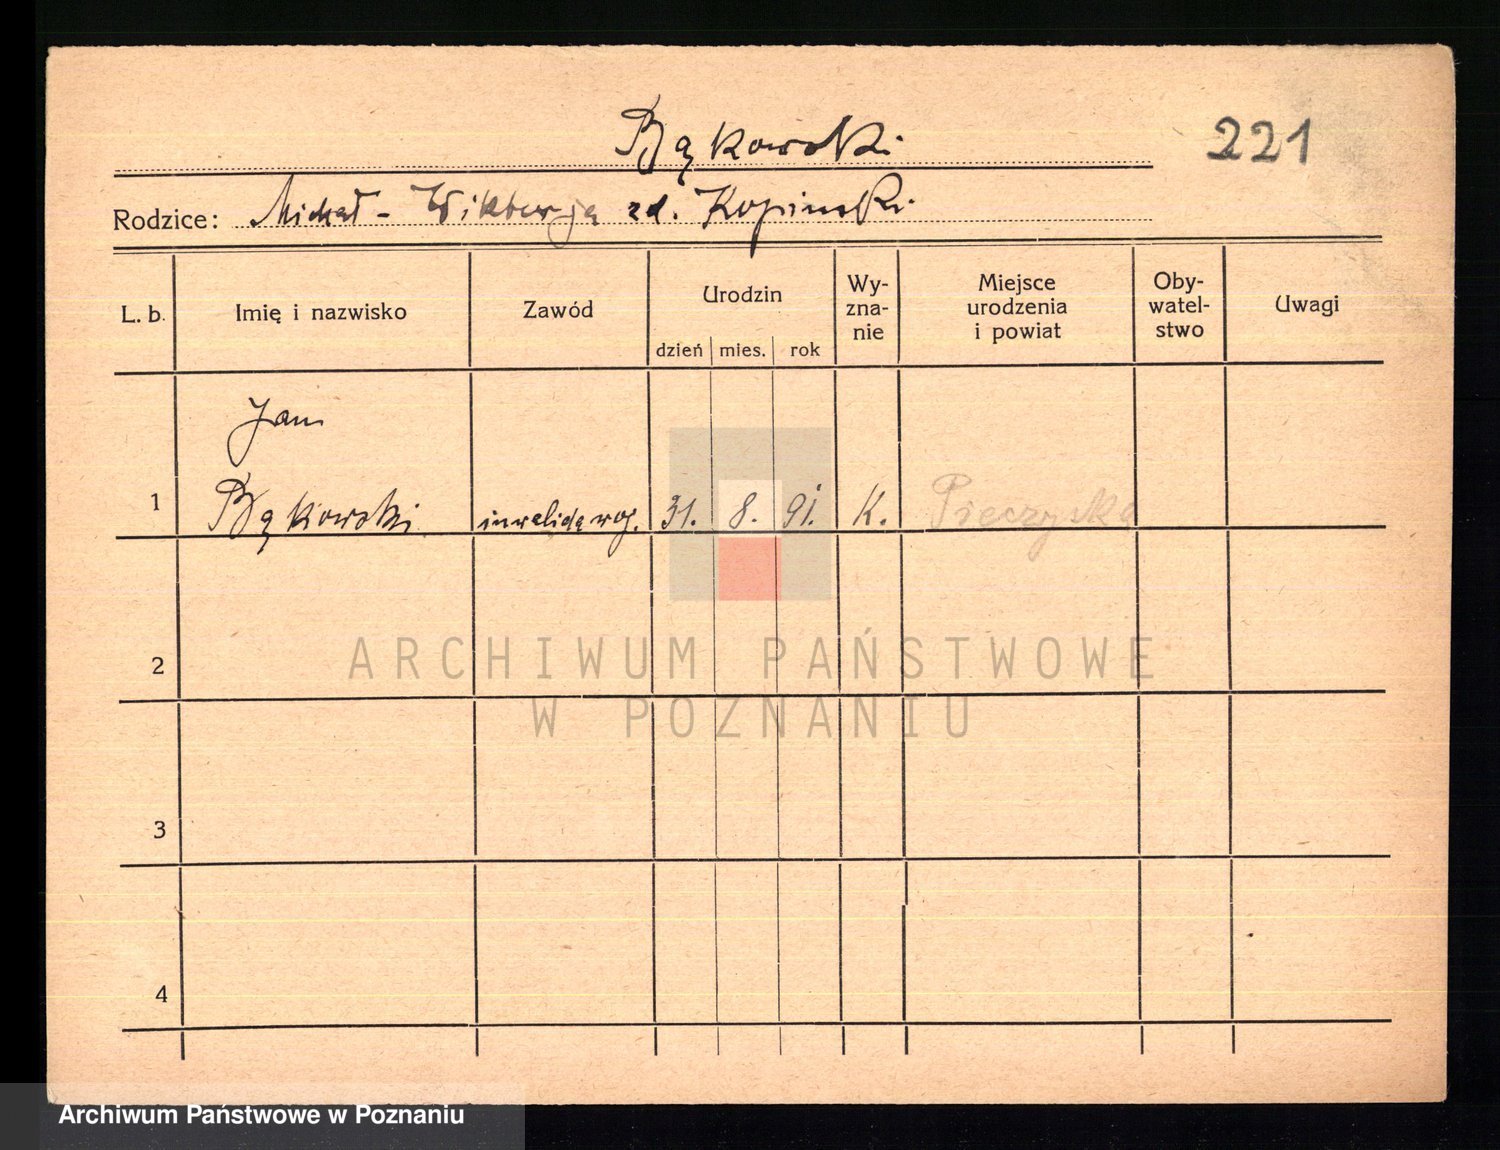 Bąkowski
221
Rodzice: Michał - Wiktorja zd. Kopinski
L. b.
Imię i nazwisko
Zawód
Urodzin
dzień mies. rok
Wy-
zna-
nie
Miejsce
urodzenia
i powiat
Oby-
watel-
stwo
Uwagi
Jan
1 Bąkowski inwalida woj. 31. 8. 91. K. Pieczyska
2
3
4
ARCHIWUM PAŃSTWOWE
W POZNANIU
Archiwum Państwowe w Poznaniu